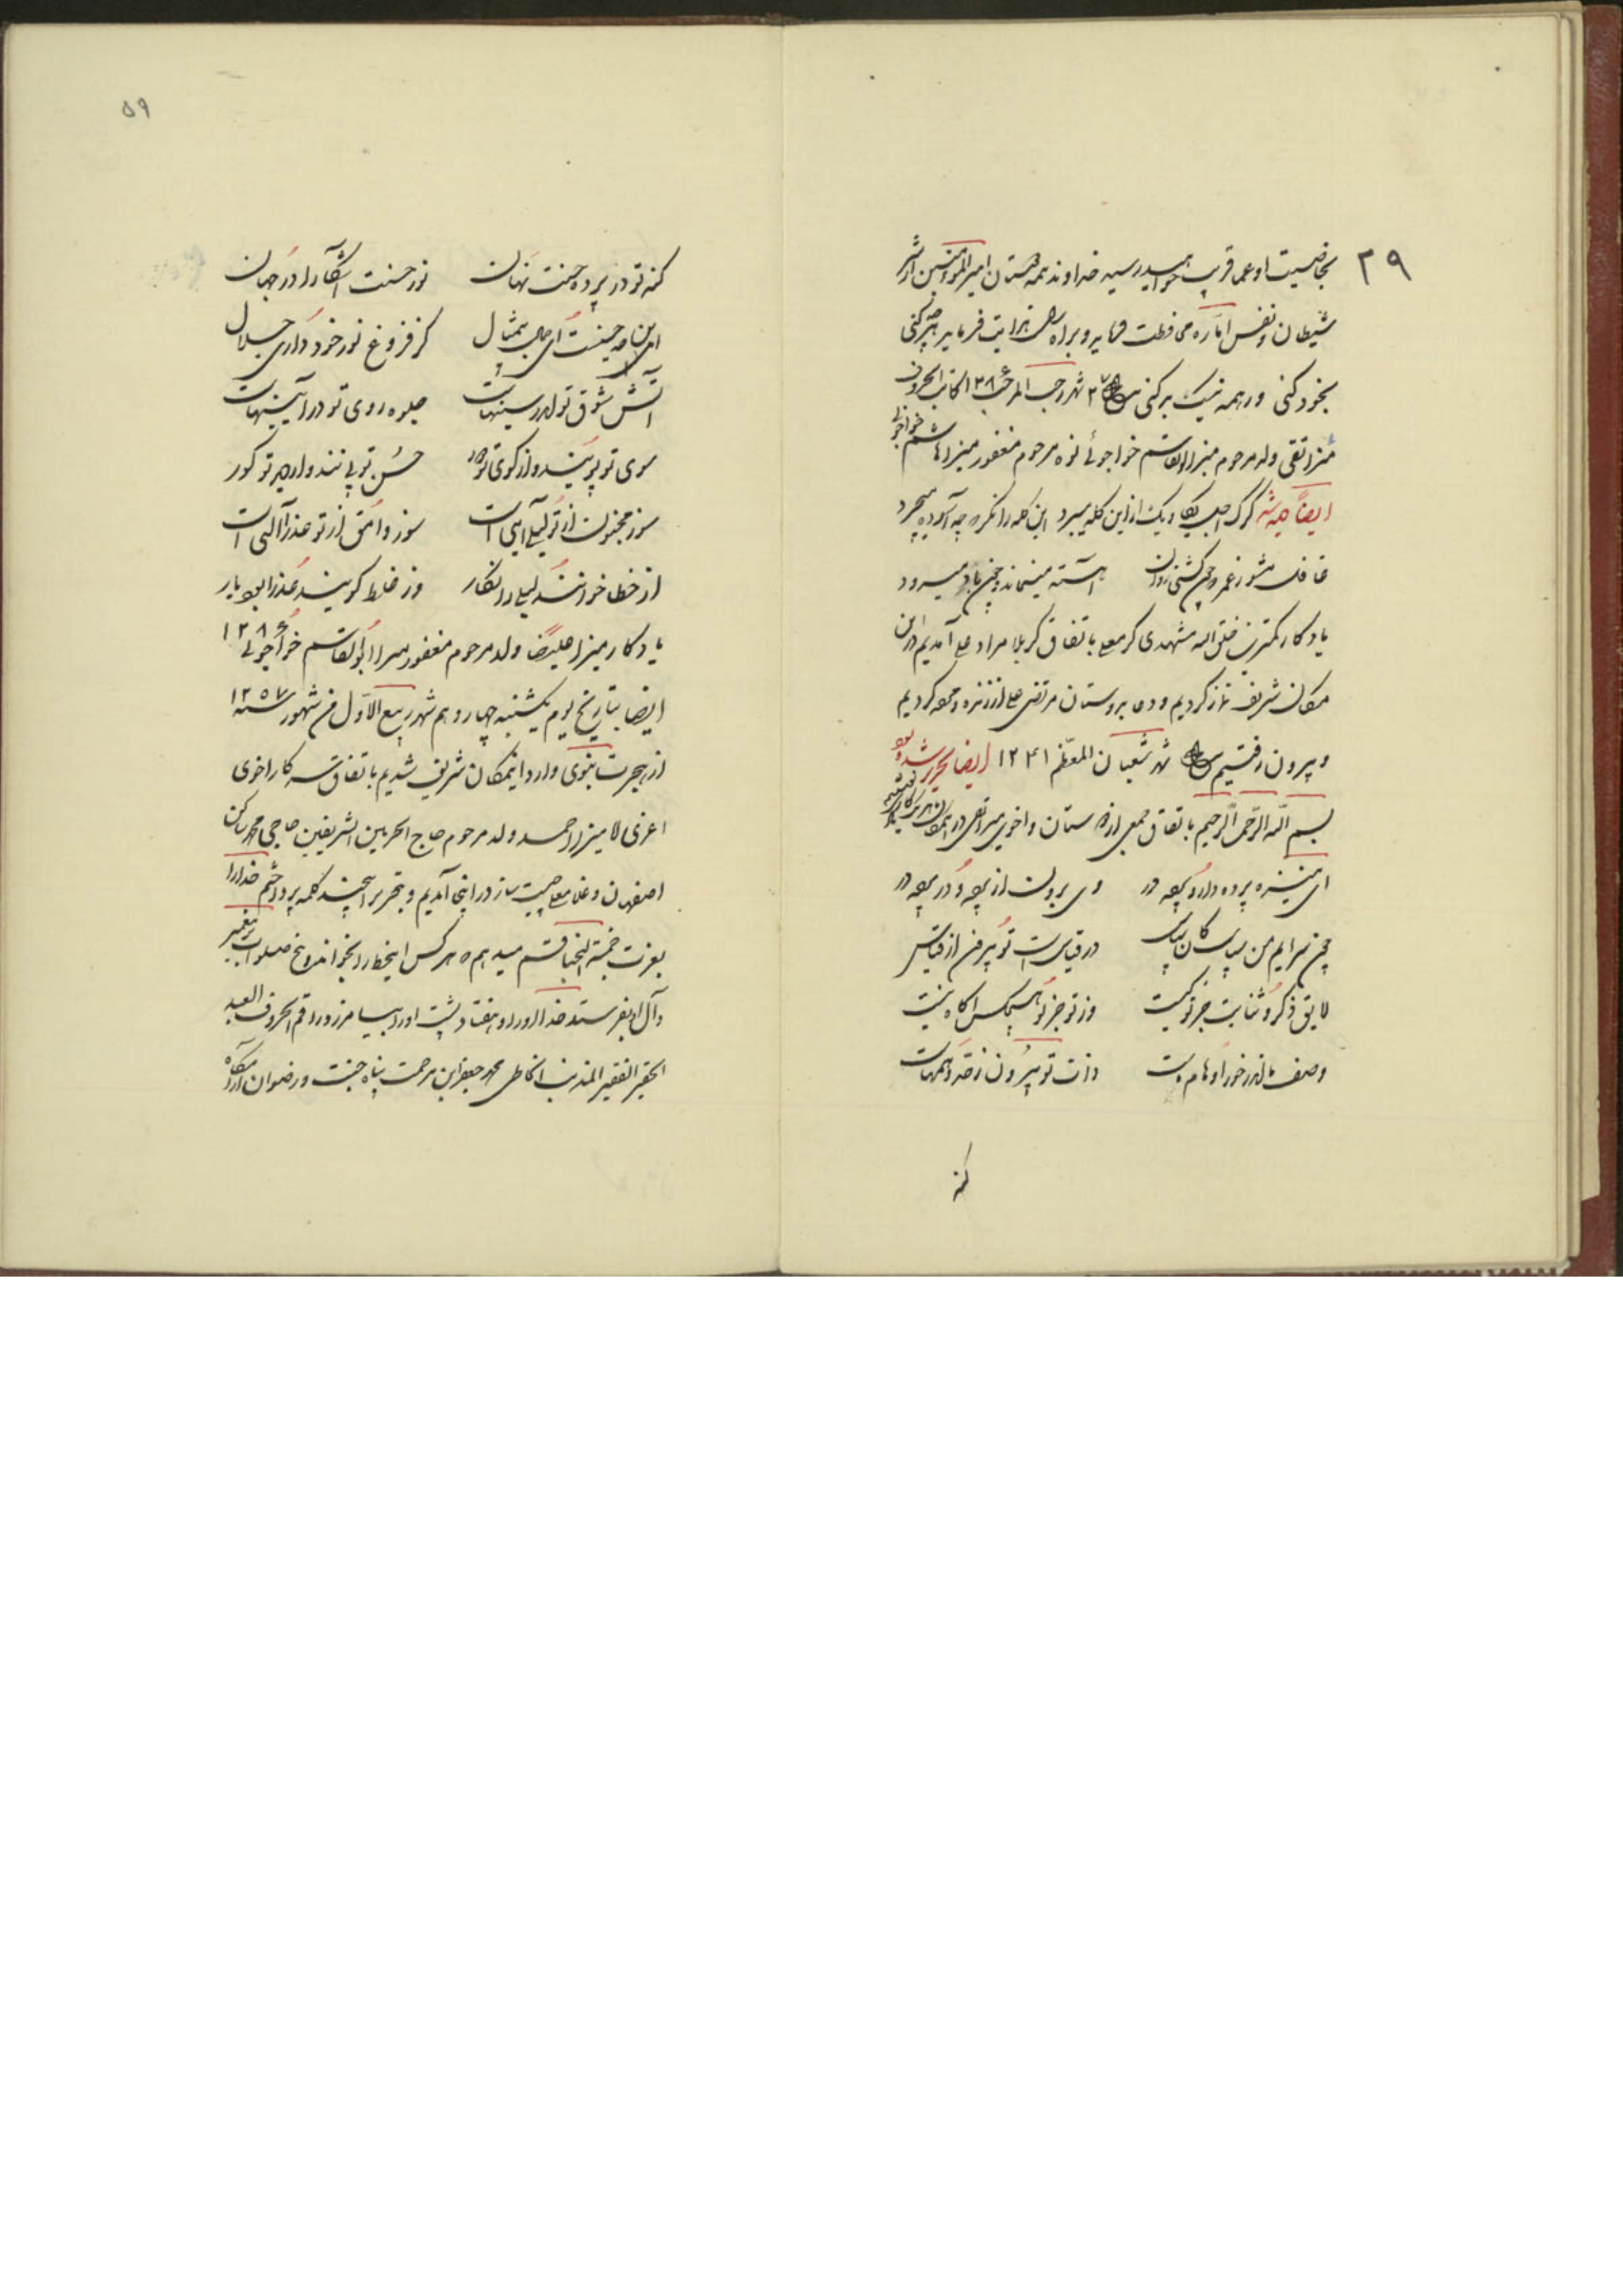 ۳۹
بخاصیت او عمر قریب خواهید رسید خداوند همه دوستان امیر المؤمنین را از شر
شیطان و نفس اماره محافظت فرماید و براه راست هدایت فرماید هر چه کنی
بخود کنی ور همه نیک و بد کنی ۲۷ شهر رجب المرجب ۱۲۸۶ کاتب الحروف
میرزا تقی ولد مرحوم میرزا ابوالقاسم خواجوئی نوه مرحوم مغفور میرزا هاشم خواجوئی
ایضاً گرگ اجل یکایک از این گله میبرد این گله را نگر که چه آسوده میچرد
غافل مشو ز عمر و چون کشتی روان آهسته مینماید و چون باد میرود
یادگار کمترین خلق الله مشهدی کرمعلی باتفاق کربلا مراد علی آمدیم در این
مکان شریف نماز کردیم و دعا بدوستان مرتضی علی از زنده و مرده کردیم
و بیرون رفتیم شهر شعبان المعظم ۱۲۴۱ ایضا تحریر شده بود
بسم الله الرحمن الرحیم باتفاق جمعی از دوستان و اخوی میرزا تقی در این مکان
ای منزه پرده دار از پرده در وی برون از پرده و در پرده در
چون سرایم من سپاس کان سپاس در قیاس است و تو بیرون از قیاس
لایق ذکر و ثنایت جز تو کیست وز تو جز تو هیچکس آگاه نیست
وصف ما اندر خور اوهام ماست ذات تو بیرون ز حد وهمهاست
کنه
۵۹
کنه تو در پرده حسنت نهان نور حسنت آشکارا در جهان
این چه حسنست ای جمال بیمثال کز فروغ نور خود داری جلال
آتش شوق تو اندر سینهاست جلوه روی تو در آئینهاست
سوی تو پویند و از کوی تو دور حسن تو بینند و از دید تو کور
سوز مجنون از تو لیلی آیتی است سوز وامق از تو عذرا آلتی است
از خطا خوانند لیلی را نگار وز غلط گویند عذرا بود یار
یادگار میرزا علیرضا ولد مرحوم مغفور میرزا ابوالقاسم خواجوئی ۱۲۸۶
ایضا بتاریخ یوم یکشنبه چهاردهم شهر ربیع الاول من شهور سنه ۱۲۵۷
از هجرت نبوی وارد اینمکان شریف شدیم باتفاق سرکار اخوی
اعزی لا میرزا احمد ولد مرحوم حاج الحرمین الشریفین حاجی محمد ساکن
اصفهان و غلامعلی ساز در اینجا آمدیم و بتحریر این چند کلمه پرداختیم خدا را
بعزت خمسة النجبا قسم میدهم که هر کس اینخط را بخواند و پنج صلوات بر پیغمبر
و آل او بفرستد خدا او را و هفتاد پشت او را بیامرزد و راقم الحروف العبد
الحقیر الفقیر المذنب الخاطی محمد جعفر ابن مرحمت پناه جنت و رضوان آرامگاه